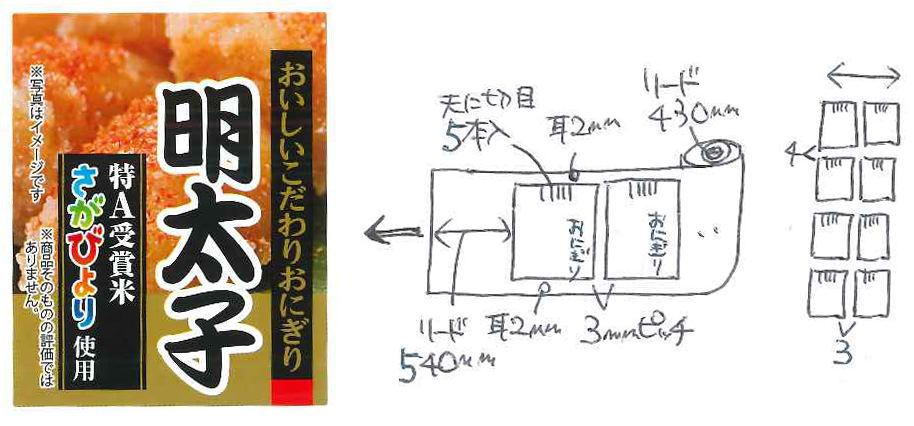 おいしいこだわりおにぎり
明太子
特A受賞米
さがびより使用
※写真はイメージです
※商品そのものの評価では
ありません。
天に切り目
5本入
耳2mm
リード
430mm
おにぎり
おにぎり
リード
540mm
耳2mm
3mmピッチ
4
3